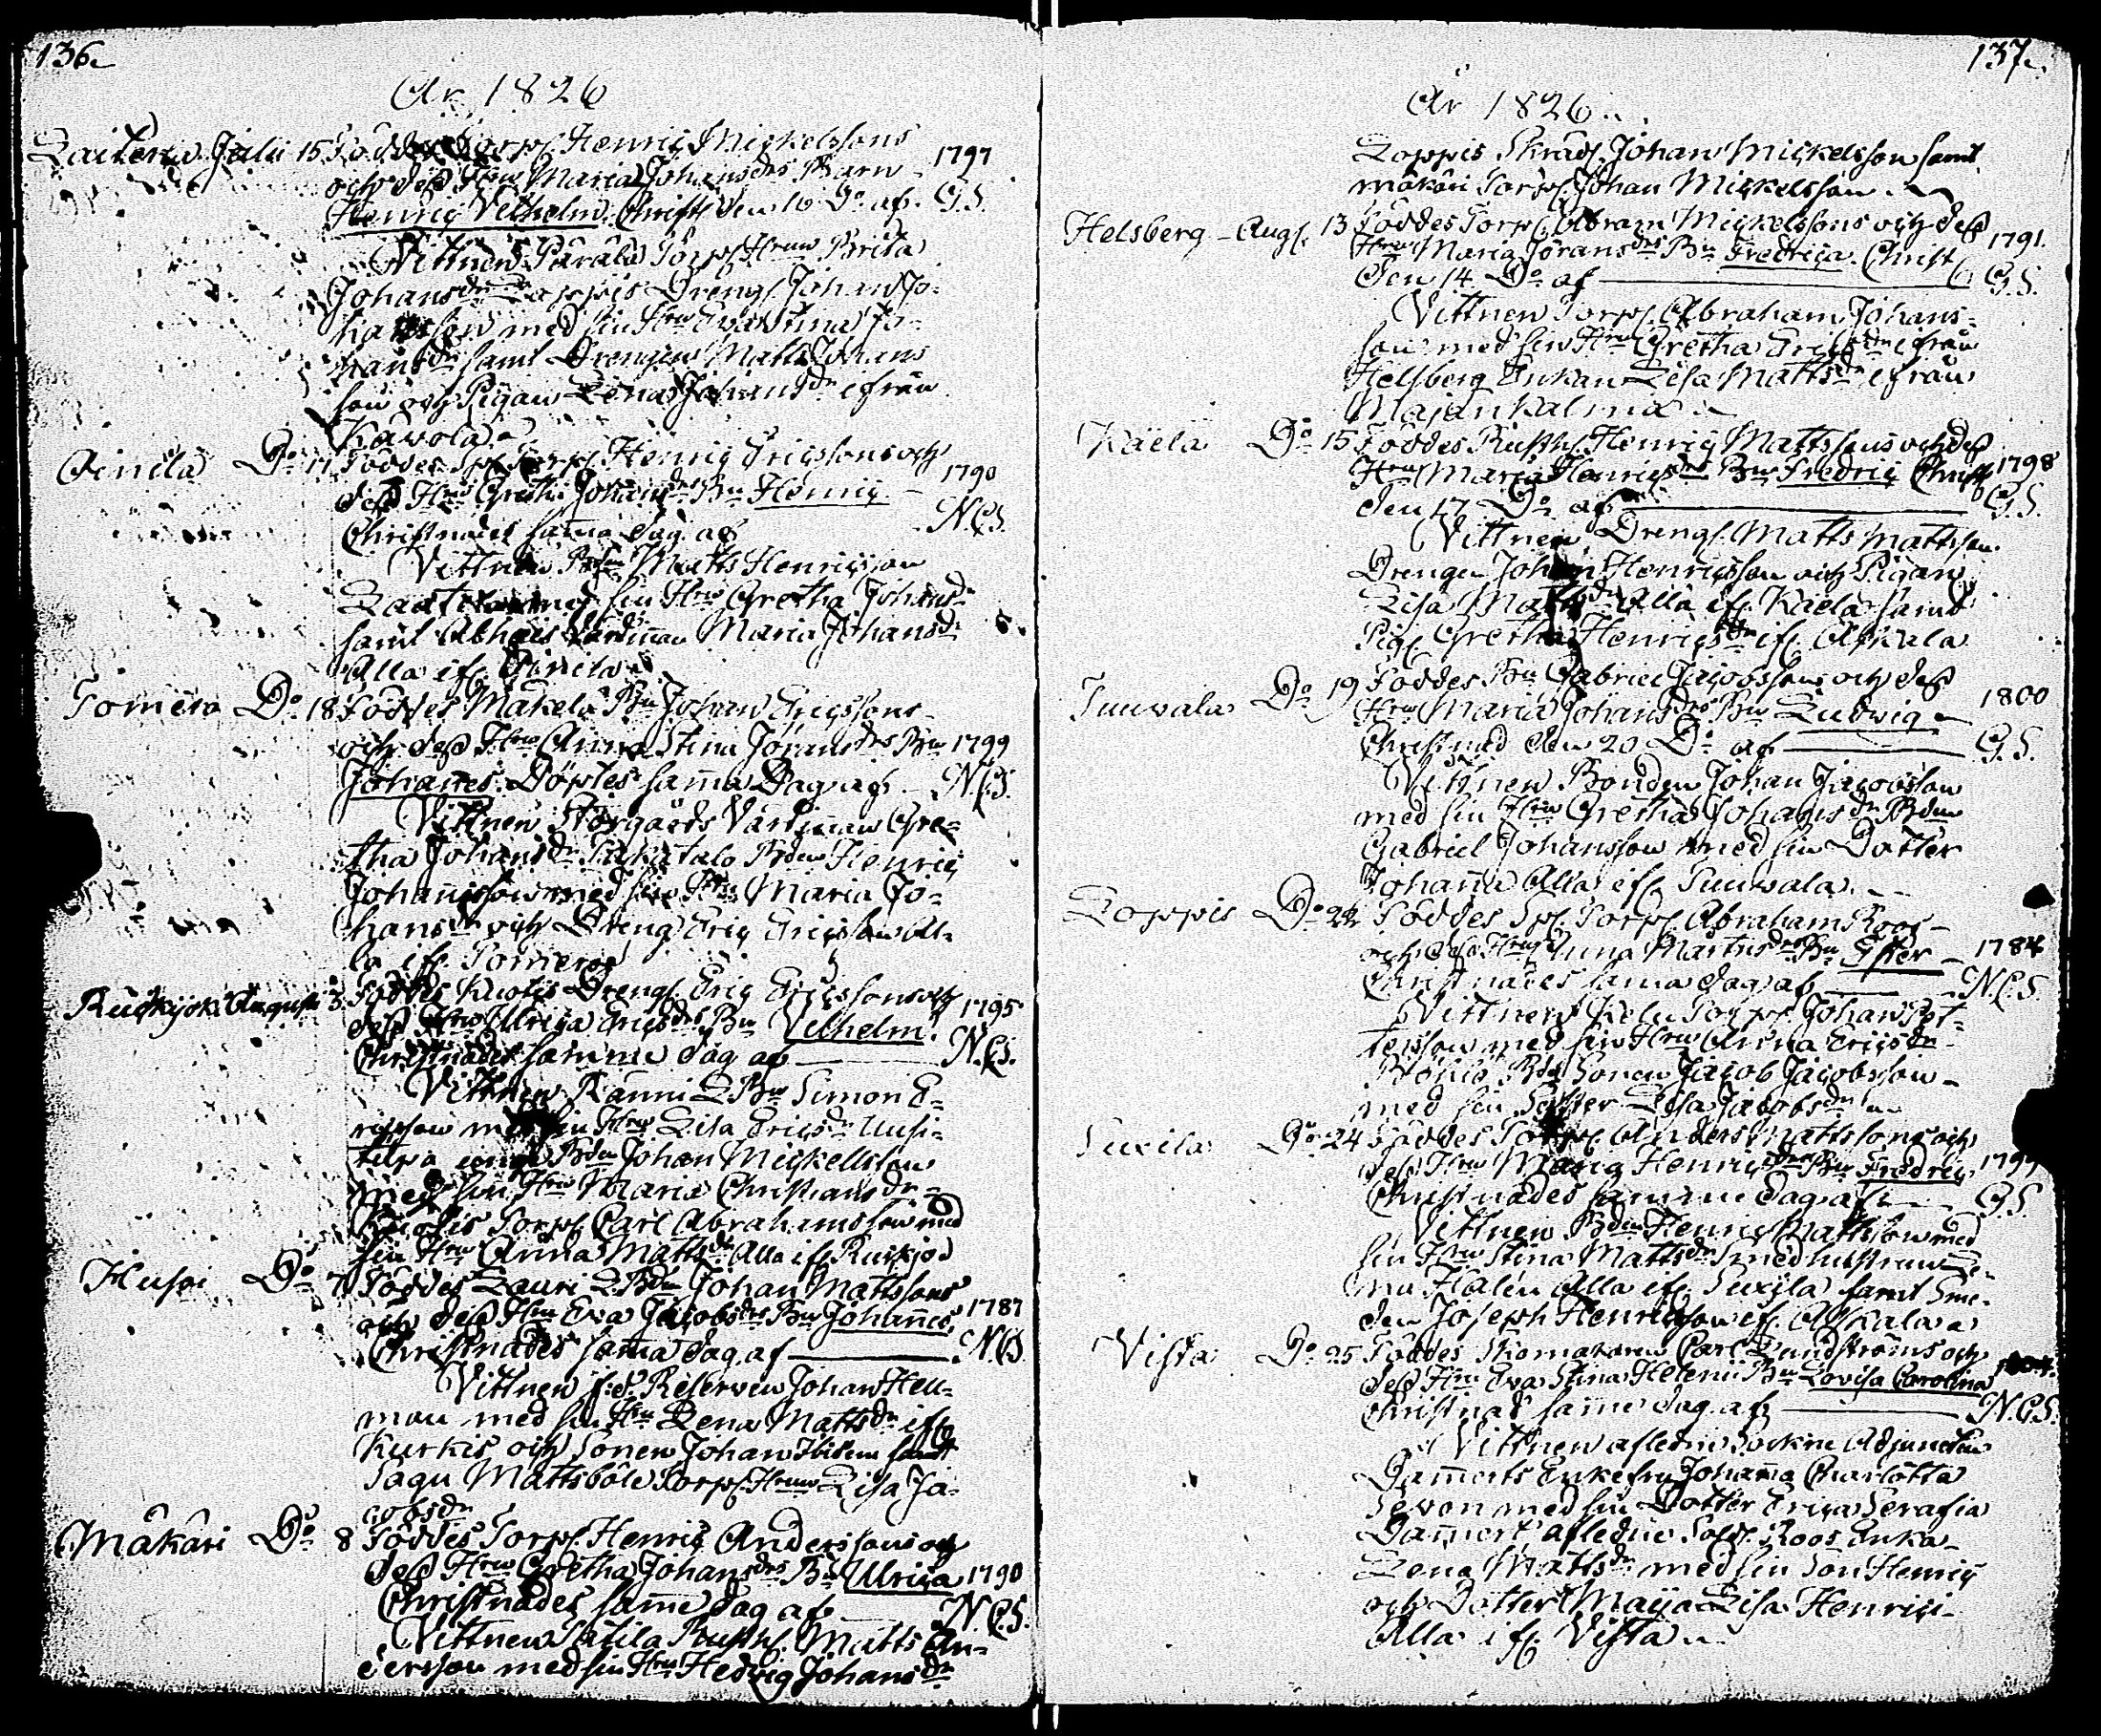 136.
År 1826
Juli 15 Föddes Torp. Henric Mickelssons
och dess Hru Maria Johansdrs Barn 1797
Henric Velhelm. Christ den 16 Do af. G.S.
Vittnen Torp. Hrun Brita
Johansdr Loppis Dreng. Johan Jo-
hansson med sin Hru Eva Stina Jo-
hansdr samt Drengen Matts Johans
son och Pigan Lena Johansdr ifrån
Kavola
Ainila Do 17 Föddes Torp. Henric Ericssons och
dess Hru Gretha Johansdrs Bn Henric 1790
Christnades samma dag af N.C.S.
Vittnen Matts Henricsson
med sin Hru Gretha Johansdr
samt Maria Johansdr
Alla if. Ainila
Tomero Do 18 Föddes Mäkelä Bn Johan Ericssons
och dess Hru Anna Stina Joransdrs Bn 1799
Johannes. Döptes samma Dag af N.C.S.
Vittnen Storgårds Värdinnan Gre-
tha Johansdr Bden Henric
Johansson med sin Hru Maria Jo-
hansdr och Dreng Eric Ericsson Al-
la if. Tomero
August 3 Föddes Kuotis Dreng. Eric Ericssons och
dess Hru Ulrica Ericsdrs Bn Velhelm. 1795
Christnades samme dag af N.C.S.
Vittnen Ranni L Bn Simon E-
ricsson med sin Hru Lisa Ericsdr Uusi-
Bden Johan Mickellsson
med sin Hru Maria Christiansdr
Kuotis Torp. Carl Abrahamsson med
sin Hru Anna Mattsdr Alla if. Ruskjo
Husoi Do 7 Föddes Lauri L. Bdn Johan Mattssons
och dess Hru Eva Jacobsdrs Bn Johannes 1787
Christnades samma dag af N.C.S.
Vittnen f.d. Reserven Johan Hell-
man med sin Hru Lena Mattsdr if.
Kurkis och Sonen Johan samt
Sagu Mattsböle Torp. Hrun Lisa Ja-
cobsdr
Mäkäri Do 8 Föddes Torp. Henric Anderssons och
dess Hru Gretha Johansdrs Bn Ulrica 1790
Christnades samme dag af N.C.S.
Vittnen Matts An-
dersson med sin Hru Hedvig Johansdr
137.
År 1826
Loppis Skräd. Johan Mickelsson samt
mäkäri Torp. Johan Mickelsson.
Helsberg Aug. 13 Föddes Torp. Abram Mickelssons och dess
Hru Maria Joransdrs Bn Fredrica. Christ 1791.
den 14 Do af G.S.
Vittnen Torp. Abraham Johans-
son med sin Hru Gretha Ericsdr ifrån
Helsberg Enkan Lisa Mattsdr ifrån
Majankalma
Käela Do 15 Föddes Rusth. Henric Mattssons och dess
Hru Maria Henricsdrs Bn Fredric Christ 1798
den 17 Do af G.S.
Vittnen Dreng. Matts Mattsson.
Drengen Johan Henricsson och Pigan
Lisa Mattsdr Alla if. Käela samt
Pig. Gretha Henricsdr if. Askala
Tuuvala Do 19 Föddes Bn Gabriel Jacobssons och dess
Hru Maria Johansdrs Bn Ludvig 1800
Christnad den 20 Do af G.S.
Vittnen Bonden Johan Jacobsson
med sin Hru Gretha Johansdr Bden
Gabriel Johansson med sin Dotter
Johanna Alla if. Tuuvala.
Loppis Do 22 Föddes Torp. Abraham Roos
och dess Hrus Anna Martinsdrs Bn Ester 1784
Christnades samma dag af N.C.S.
Vittnen Torp. Johan Pet-
tersson med sin Hru Anna Ericsdr
Bd Sonen Jacob Jacobsson
med sin Syster Lisa Jacobsdr
Suxila Do 24 Föddes Torp. Anders Mattssons och
dess Hru Maria Henricsdrs Bn Fredric
Christnades samme dag af G.S.
Vittnen Bden Henric Mattsson med
sin Hru Stina Mattsdr Smedhustrun Le-
na Halén Alla if. Suxila samt Sme-
den Joseph Henricsson if. Askala
Vista Do 25 Föddes Skomakaren Carl Lundströms och
dess Hru Eva Stina Helenii Bn Lovisa Carolina
Christnad samme dag af N.C.S.
Vittnen afledne Sockne Adjuncten
Dammerts Enkefru Johanna Charlotta
Sevon med sin Dotter Erica Serafia
Dammert afledne Sold. Roos Enka
Lena Mattsdr med sin Son Henric
och Dotter Maija Lisa Henrici
Alla if. Vista